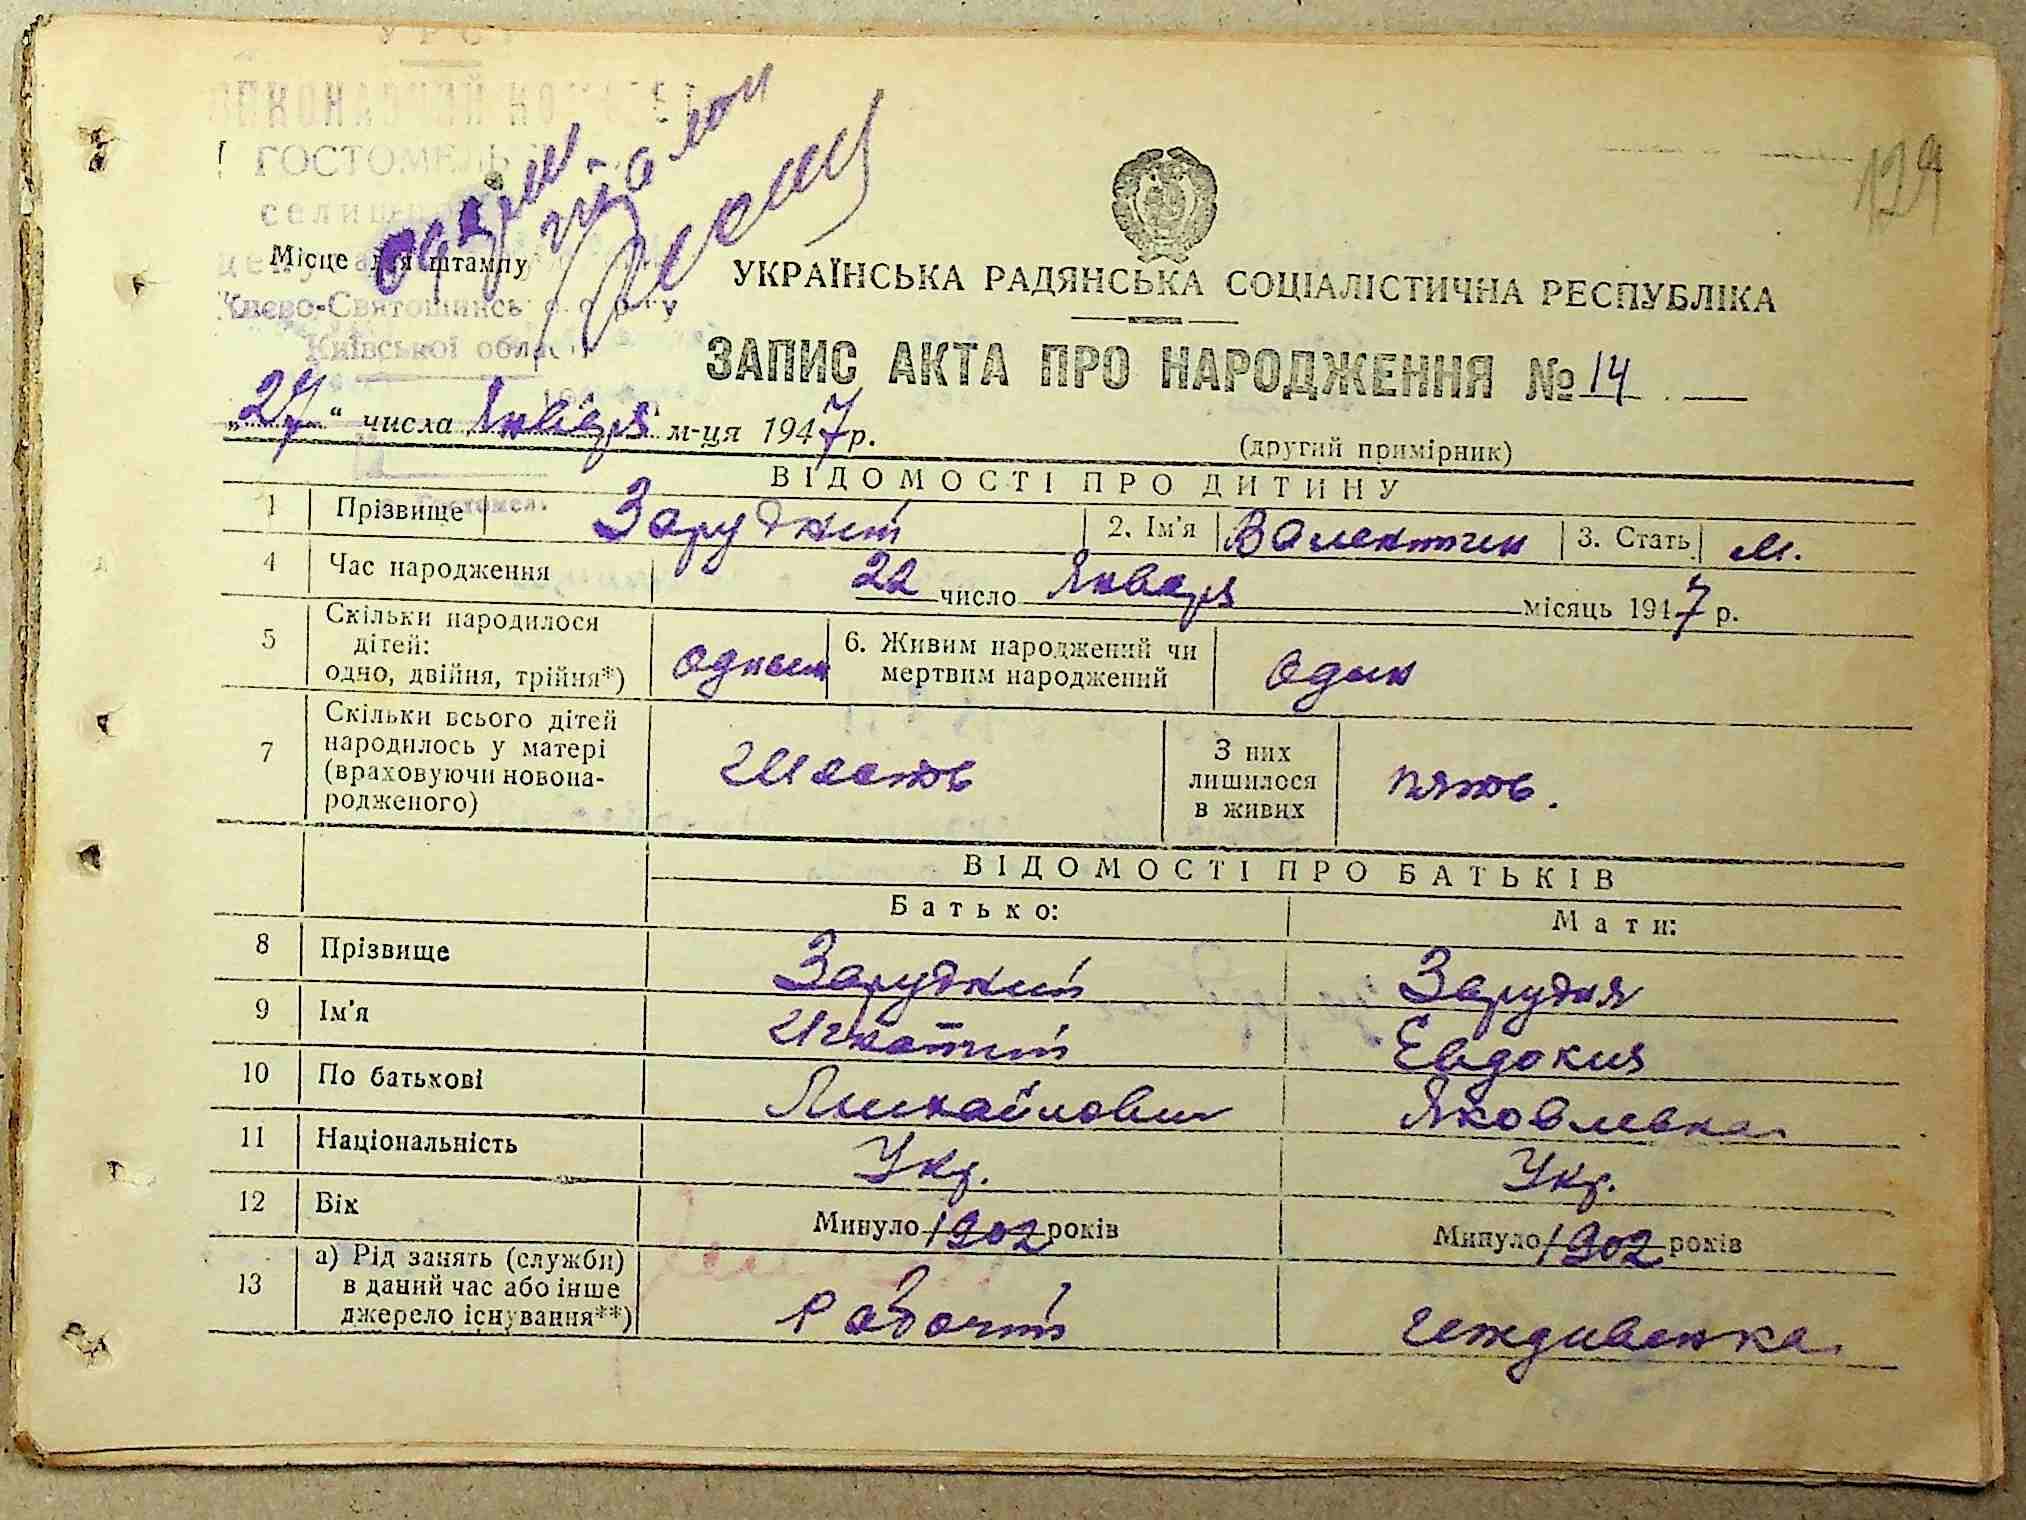 УРСР
ВИКОНАВЧИЙ КОМІТЕТ
ГОСТОМЕЛЬ
129
Місце для штампу
Києво-Святошинськ
Київської обл
УКРАЇНСЬКА РАДЯНСЬКА СОЦІАЛІСТИЧНА РЕСПУБЛІКА
ЗАПИС АКТА ПРО НАРОДЖЕННЯ № 14
„27“ числа Января м-ця 1947 р.
(другий примірник)
ВІДОМОСТІ ПРО ДИТИНУ
1 Прізвище Зарудний 2. Ім'я Валентин 3. Стать М.
4 Час народження 22 число Января місяць 1947 р.
5 Скільки народилося дітей: одно, двійня, трійня*) 6. Живим народжений чи мертвим народжений один
7 Скільки всього дітей народилось у матері (враховуючи новонародженого) шесть З них лишилося в живих пять.
ВІДОМОСТІ ПРО БАТЬКІВ
Батько: Мати:
8 Прізвище Зарудний Зарудня
9 Ім'я Игнатий Евдокия
10 По батькові Михайлович Яковлевна
11 Національність Укр. Укр.
12 Вік Минуло 1902 років Минуло 1902 років
13 а) Рід занять (служби) в даний час або інше джерело існування**) Рабочий иждивенка